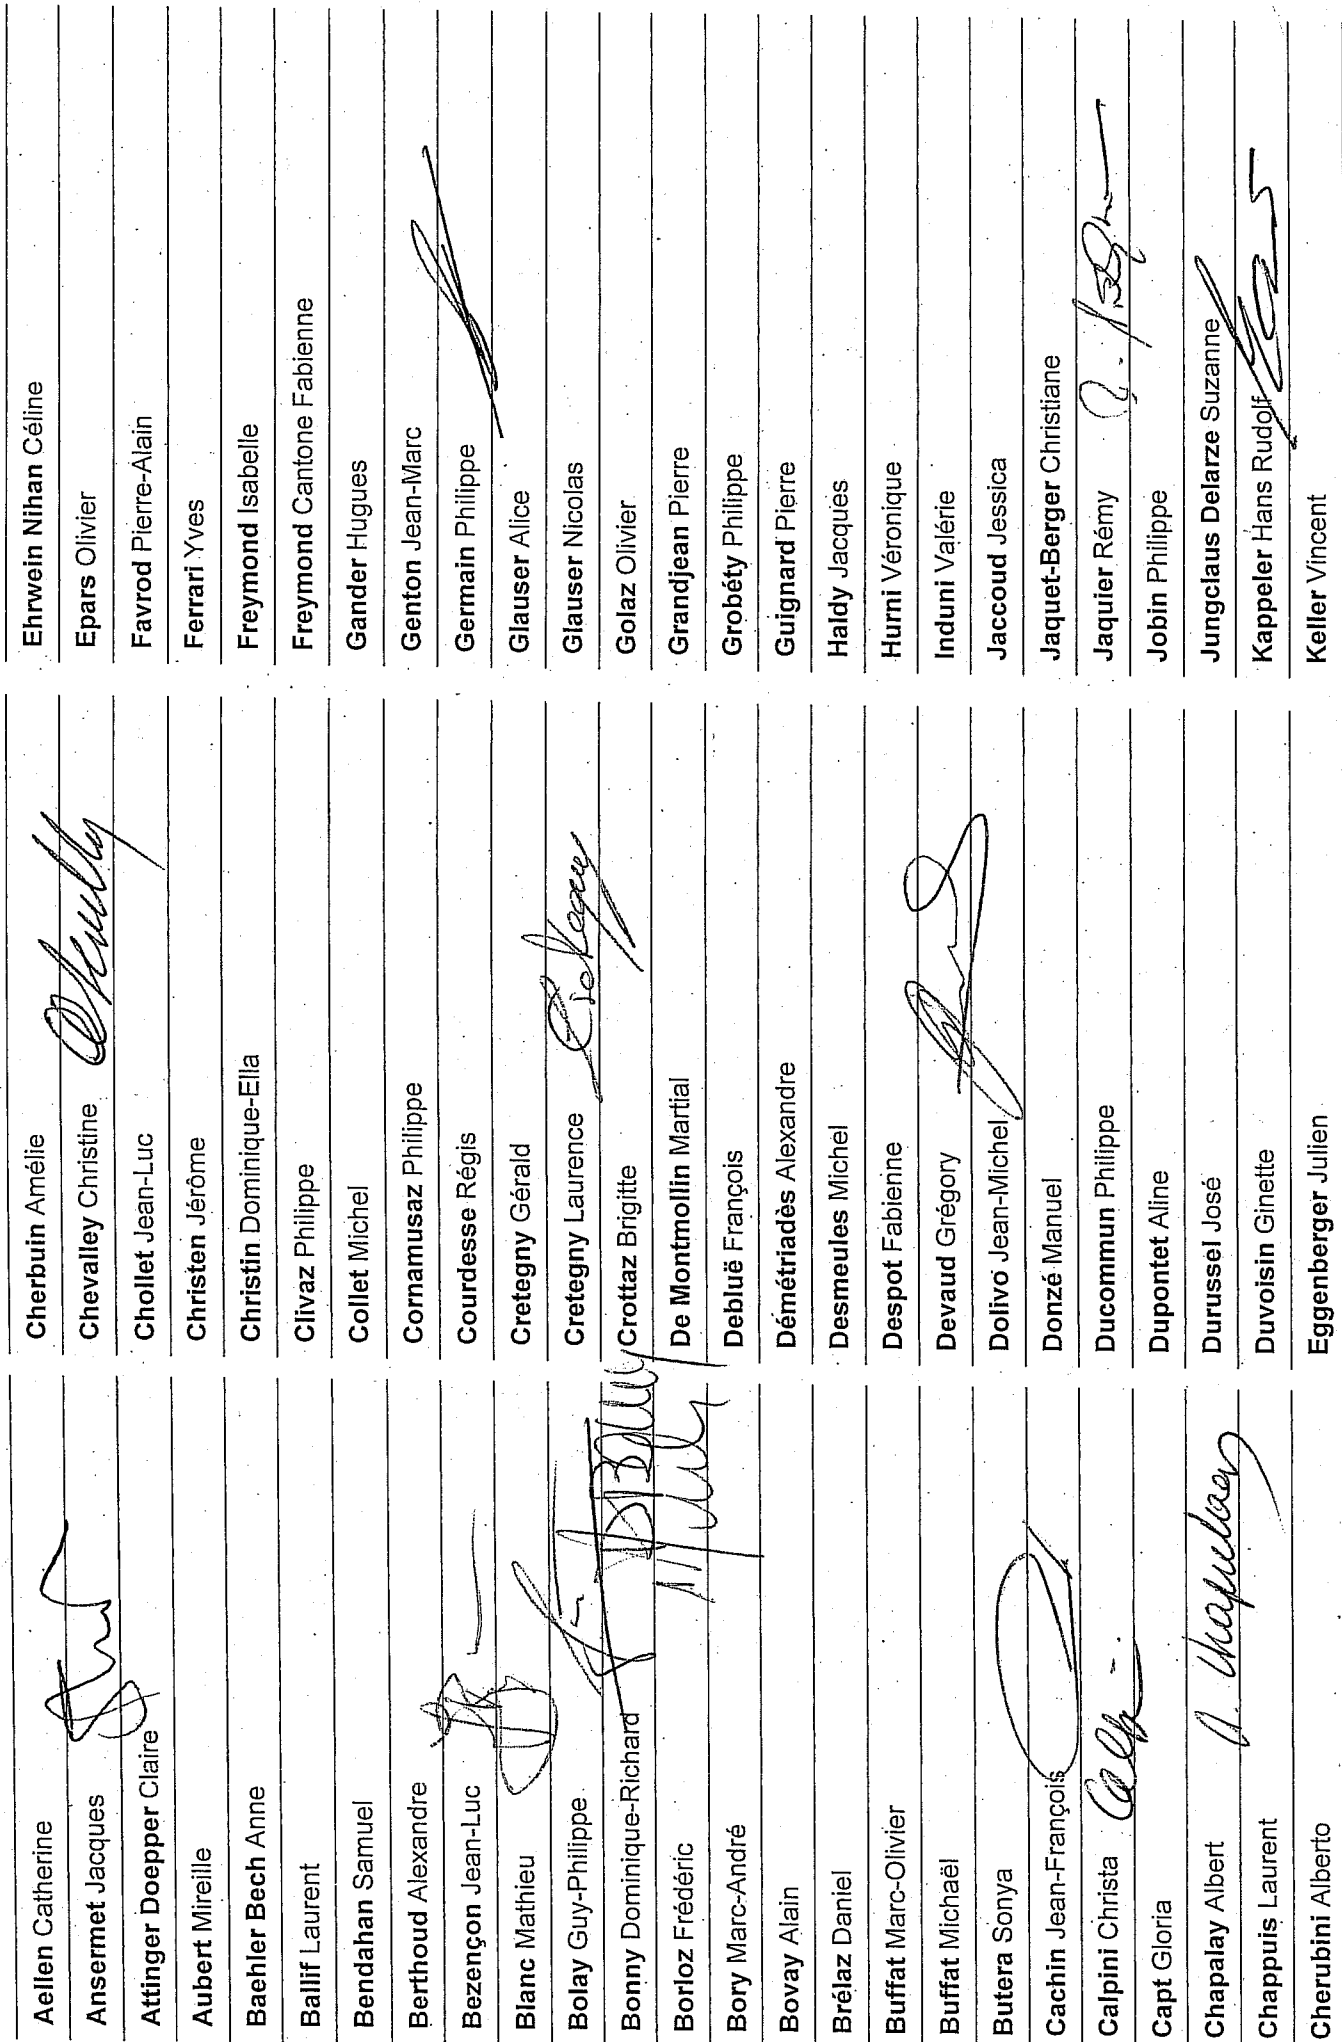 Aellen Catherine
Ansermet Jacques
Attinger Doepper Claire
Aubert Mireille
Baehler Bech Anne
Ballif Laurent
Bendahan Samuel
Berthoud Alexandre
Bezençon Jean-Luc
Blanc Mathieu
Bolay Guy-Philippe
Bonny Dominique-Richard
Borloz Frédéric
Bory Marc-André
Bovay Alain
Brélaz Daniel
Buffat Marc-Olivier
Buffat Michaël
Butera Sonya
Cachin Jean-François
Calpini Christa
Capt Gloria
Chapalay Albert
Chappuis Laurent
Cherubini Alberto
Cherbuin Amélie
Chevalley Christine
Chollet Jean-Luc
Christen Jérôme
Christin Dominique-Ella
Clivaz Philippe
Collet Michel
Cornamusaz Philippe
Courdesse Régis
Cretegny Gérald
Cretegny Laurence
Crottaz Brigitte
De Montmollin Martial
Debluë François
Démétriadès Alexandre
Desmeules Michel
Despot Fabienne
Devaud Grégory
Dolivo Jean-Michel
Donzé Manuel
Ducommun Philippe
Dupontet Aline
Durussel José
Duvoisin Ginette
Eggenberger Julien
Ehrwein Nihan Céline
Epars Olivier
Favrod Pierre-Alain
Ferrari Yves
Freymond Isabelle
Freymond Cantone Fabienne
Gander Hugues
Genton Jean-Marc
Germain Philippe
Glauser Alice
Glauser Nicolas
Golaz Olivier
Grandjean Pierre
Grobéty Philippe
Guignard Pierre
Haldy Jacques
Hurni Véronique
Induni Valérie
Jaccoud Jessica
Jaquet-Berger Christiane
Jaquier Rémy
Jobin Philippe
Jungclaus Delarze Suzanne
Kappeler Hans Rudolf
Keller Vincent